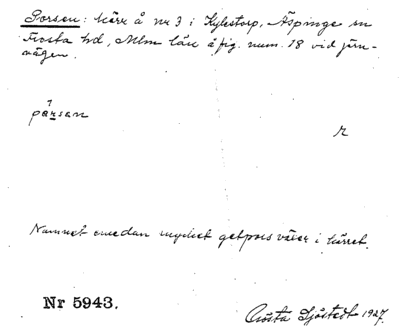 Porsen: kärr å nr 3 i Kylestorp, Äspinge sn
Frosta hd, Mlm län å fig. num. 18 vid järn-
vägen.
pårsan
r
Namnet emedan mycket getpors växer i kärret.
Nr 5943.
Gösta Sjöstedt 1927.